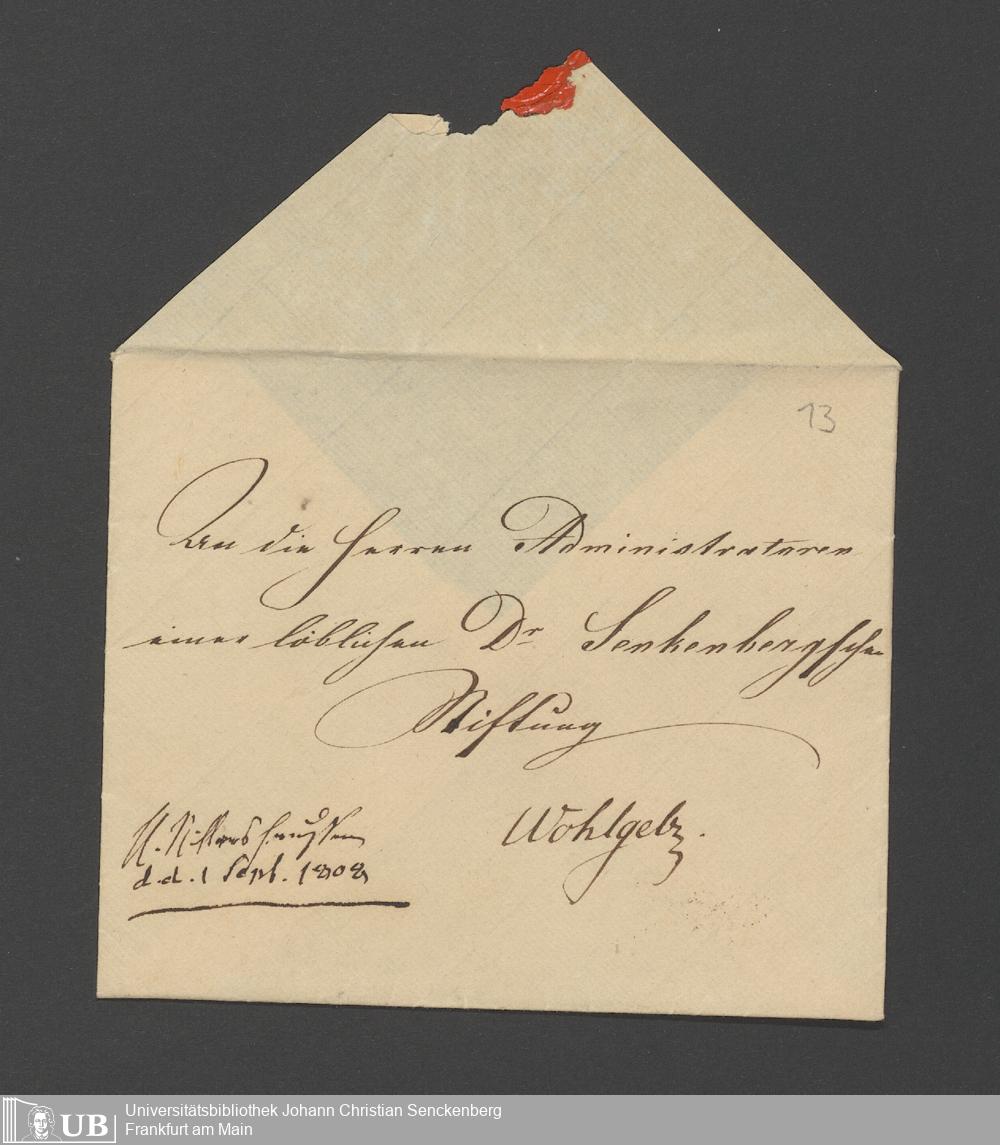 13
An die Herren Administratoren
einer löblichen Dr. Senkenbergschen
Stiftung
Wohlgeb.
d. d. 1 Sept. 1808
UB
Universitätsbibliothek Johann Christian Senckenberg
Frankfurt am Main